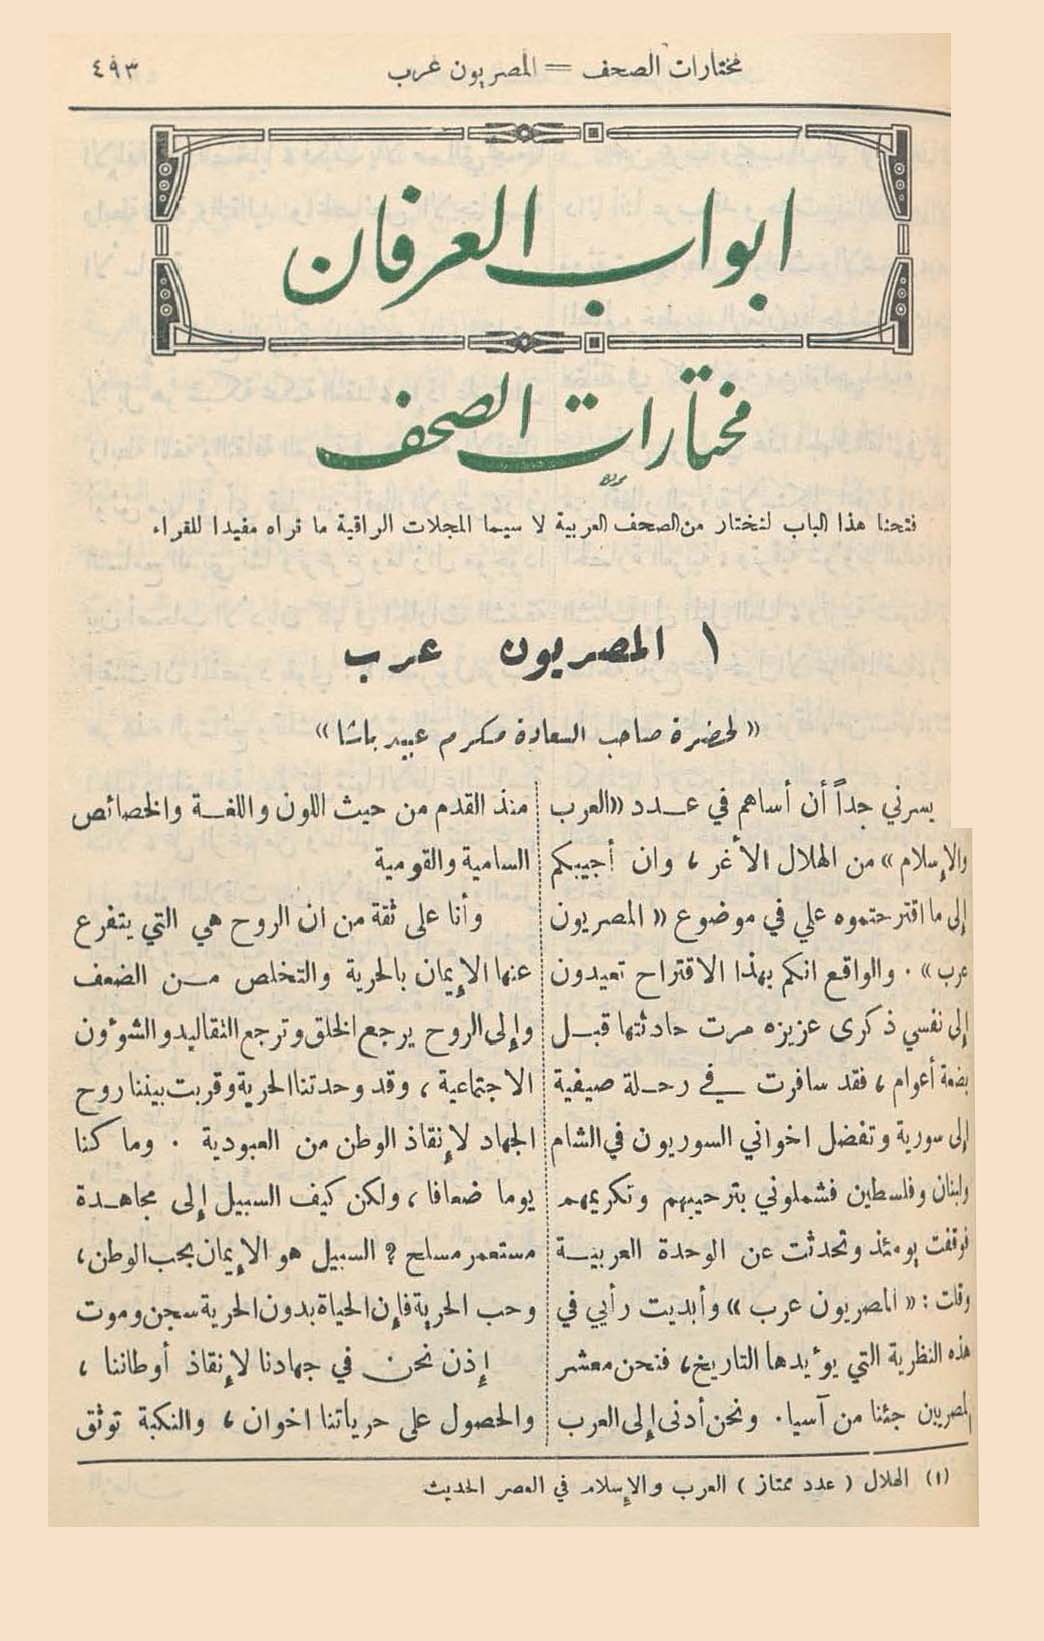 مختارات الصحف = المصريون عرب
٤٩٣
ابواب العرفان
مختارات الصحف
فتحنا هذا الباب لنختار من الصحف العربية لا سيما المجلات الراقية ما نراه مفيدا للقراء
١ المصريون عرب
« لحضرة صاحب السعادة مكرم عبيد باشا »
يسرني جداً أن أساهم في عدد « العرب
والإسلام » من الهلال الأغر ، وان أجيبكم
إلى ما اقترحتموه علي في موضوع « المصريون
عرب » . والواقع انكم بهذا الاقتراح تعيدون
إلى نفسي ذكرى عزيزه مرت حادثتها قبل
بضعة أعوام ، فقد سافرت في رحلة صيفية
إلى سورية وتفضل اخواني السوريون في الشام
ولبنان وفلسطين فشملوني بترحيبهم وتكريمهم
فوقفت يومئذ وتحدثت عن الوحدة العربية
وقلت : « المصريون عرب » وأبديت رأيي في
هذه النظرية التي يؤيدها التاريخ ، فنحن معشر
المصريين جئنا من آسيا . ونحن أدنى إلى العرب
منذ القدم من حيث اللون واللغة والخصائص
السامية والقومية
وأنا على ثقة من ان الروح هي التي يتفرع
عنها الإيمان بالحرية والتخلص من الضعف
وإلى الروح يرجع الخلق وترجع التقاليد والشؤون
الاجتماعية ، وقد وحدتنا الحرية وقربت بيننا روح
الجهاد لإنقاذ الوطن من العبودية . وما كنا
يوما ضعافا ، ولكن كيف السبيل إلى مجاهدة
مستعمر مسلح ؟ السبيل هو الإيمان بحب الوطن ،
وحب الحرية فإن الحياة بدون الحرية سجن وموت
إذن نحن في جهادنا لإنقاذ أوطاننا ،
والحصول على حرياتنا اخوان ، والنكبة توثق
(١) الهلال ( عدد ممتاز ) العرب والإسلام في العصر الحديث